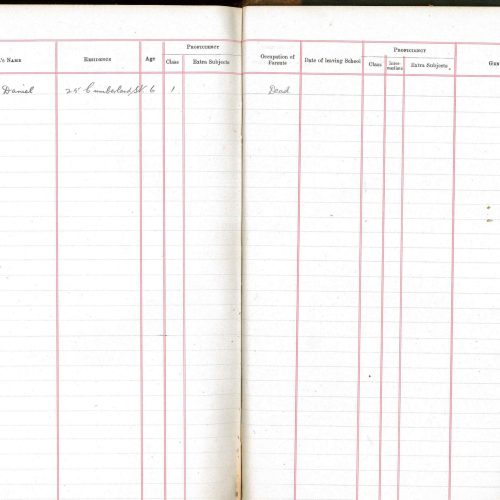 Proficiency
's Name Residence Age Class Extra Subjects
Daniel 25 Cumberland St 6 1
Proficiency
Occupation of Parents Date of leaving School Class Inter-mediate Extra Subjects
Dead